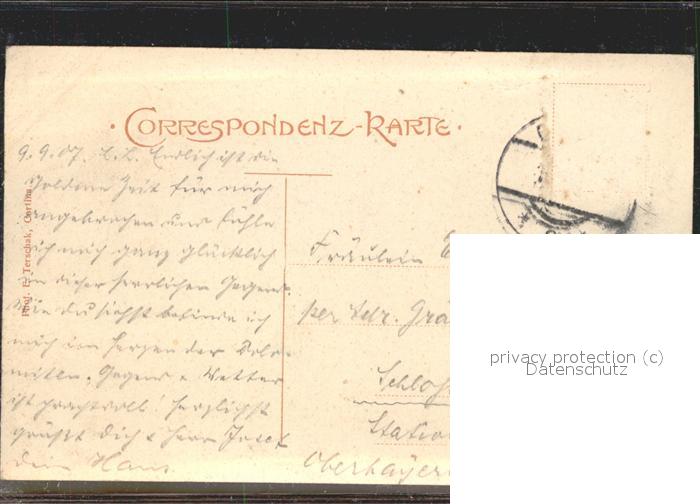 · CORRESPONDENZ-KARTE ·
9.9.07. L.L. Endlich ist die
goldene Zeit für mich
angebrochen und fühle
ich mich ganz glücklich
in dieser herrlichen Gegend.
Wie du siehst befinde ich
mich im Herzen der Dolo-
miten. Gegend u Wetter
ist prachtvoll! Herzlichst
grüßt Dich u Herrn Josef
dein Hans
Phot. F. Terschak, Cortina
Fräulein
per Adr. Grä
Schloß
Station
Oberbayern
privacy protection (c)
Datenschutz